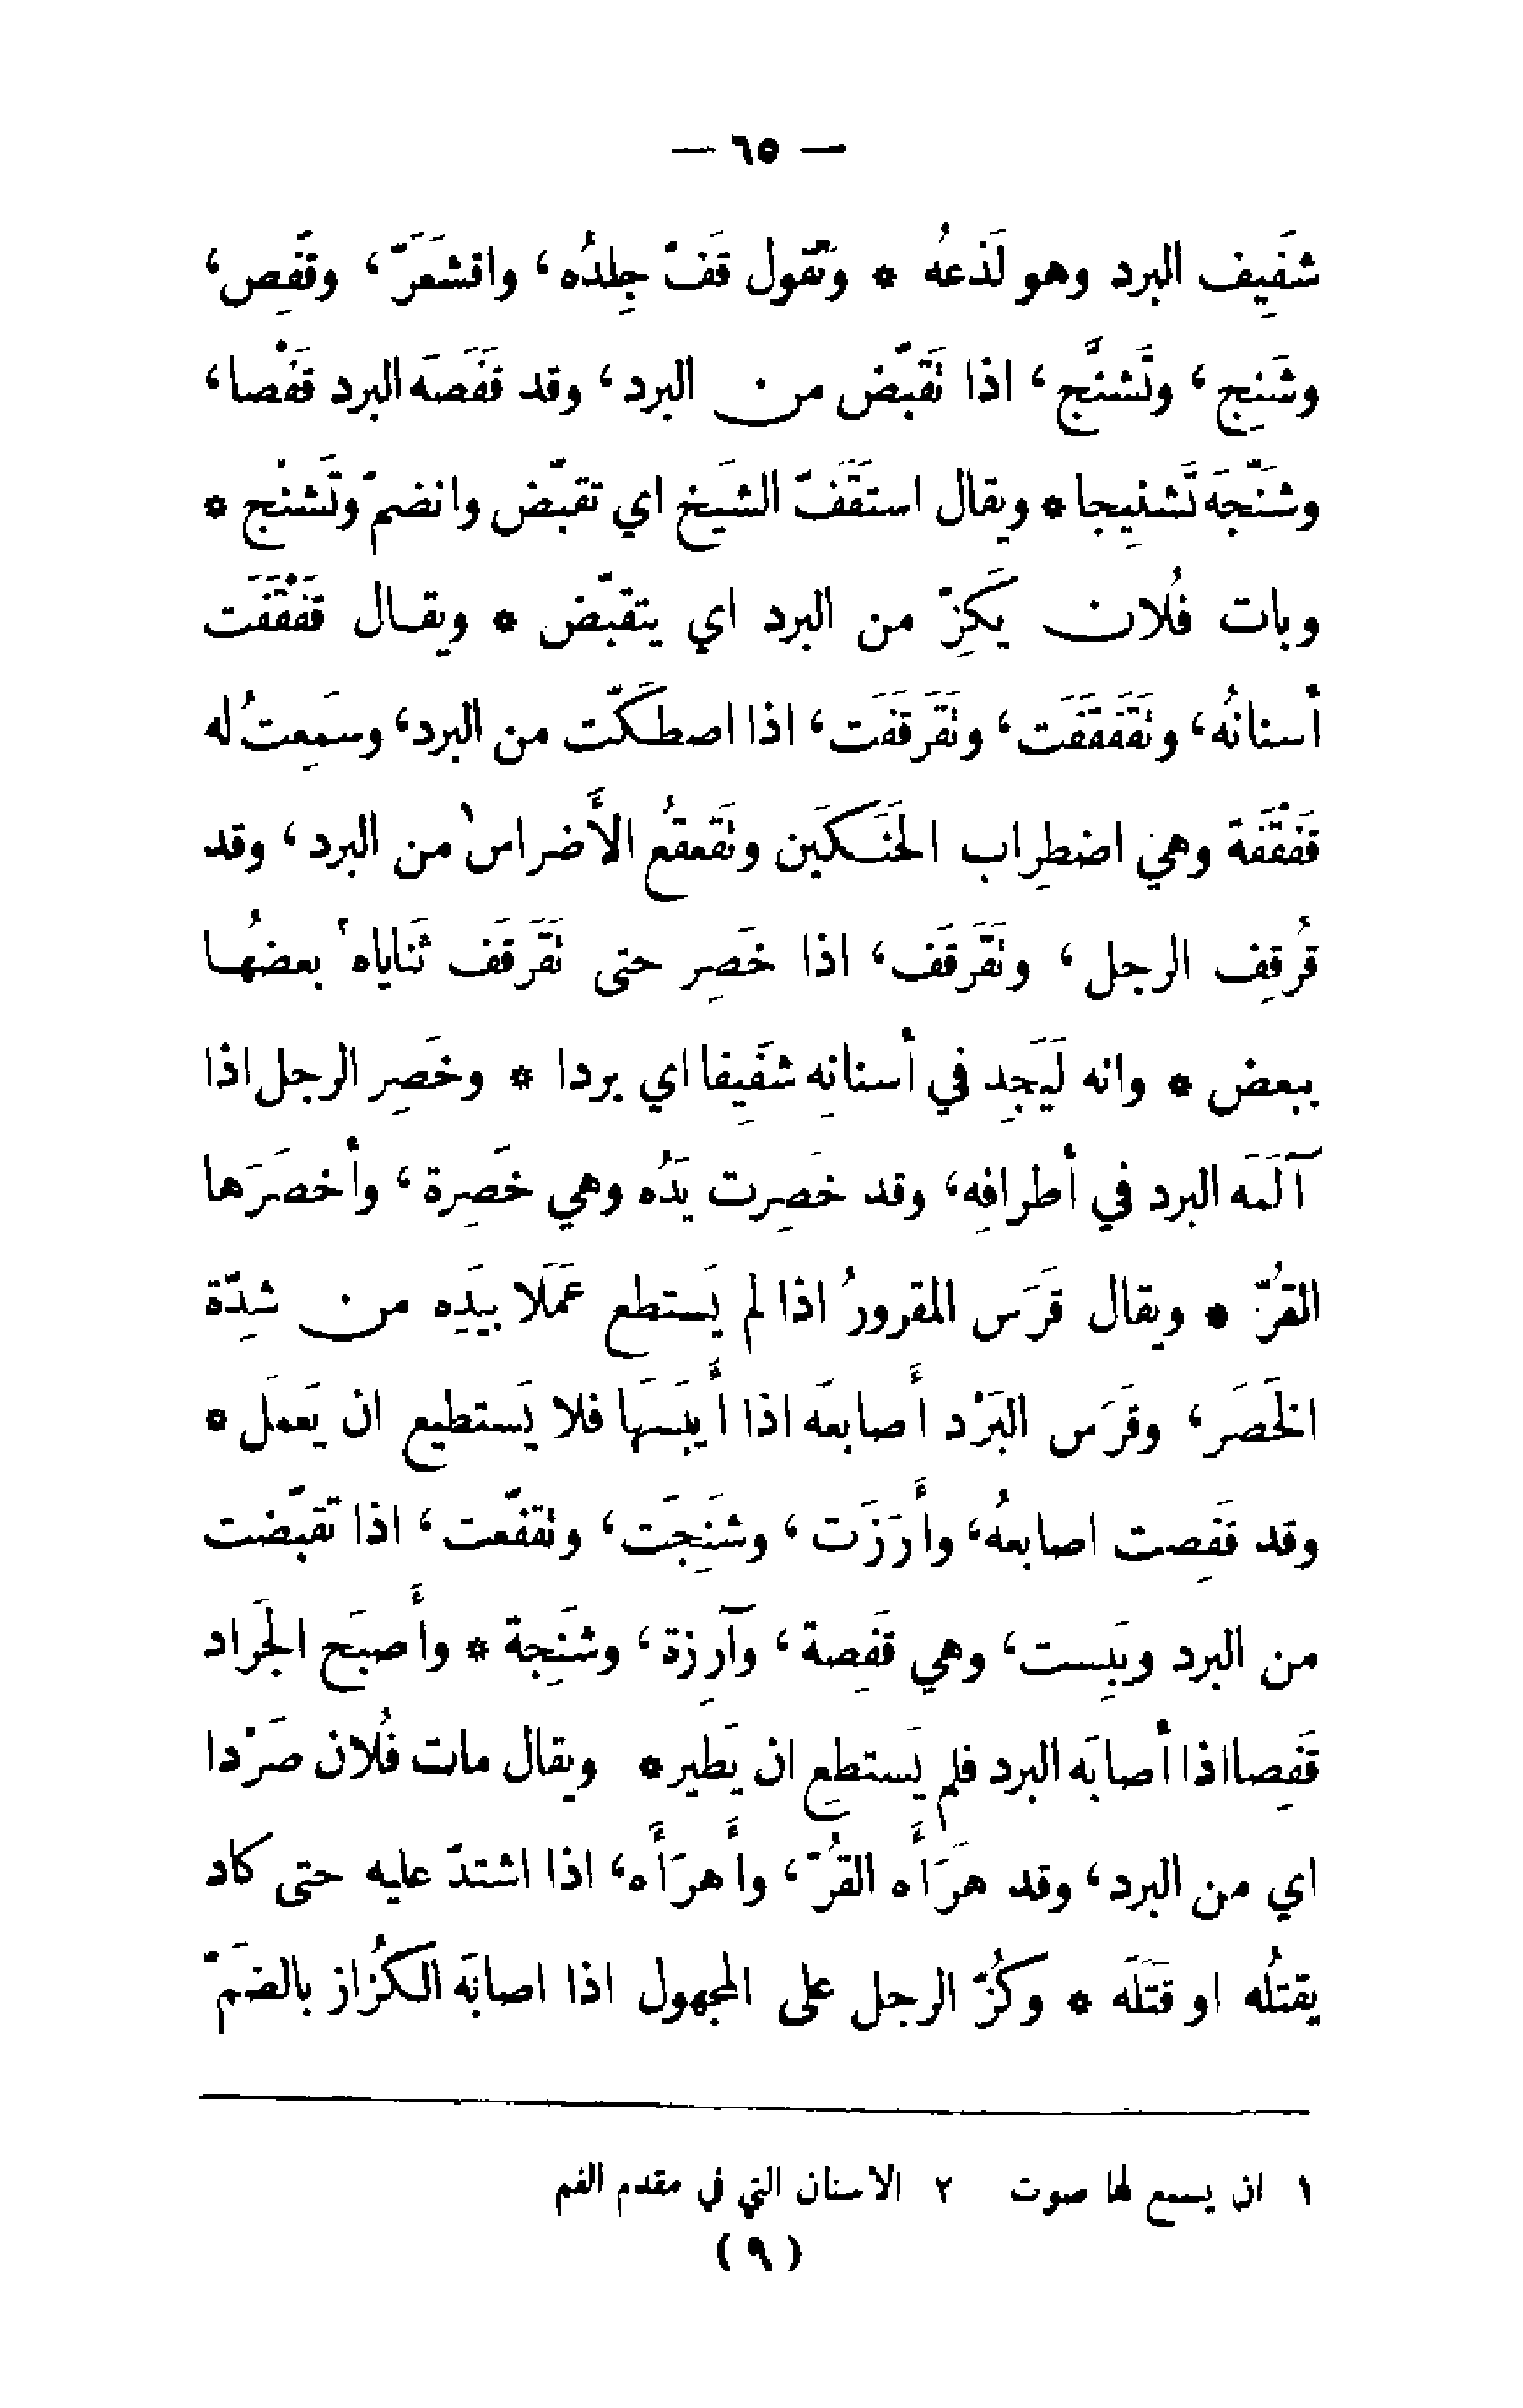 — ٦٥ —
شَفِيف البرد وهو لَذعُه * وتَقول قَفّ جِلدُه، واقشَعَرَّ، وقَفِص،
وشَنِج، وتَشنَّج، اذا تَقبّض من البرد، وقد قَفَصَه البرد قَفْصا،
وشَنَّجَه تَشنِيجا * ويقال استَقَفّ الشَيخ اي تقبّض وانضمّ وتَشنّج *
وبات فُلان يَكِزّ من البرد اي يتقبّض * ويقال قَفْقَفَت
أسنانُه، وتَقَفقَفَت، وتَقَرقَفَت، اذا اصطَكّت من البرد، وسَمِعتُ له
قَفْقَفَة وهي اضطِراب الحَنَكَين وتَقَعقُع الأَضراس١ من البرد، وقد
قُرقِف الرجل، وتَقَرقَف، اذا خَصِر حتى تَقَرقَف ثَناياه٢ بعضُها
ببعض * وانه لَيَجِد في أسنانِه شَفِيفا اي بردا * وخَصِر الرجل اذا
آلَمَه البرد في أطرافِه، وقد خَصِرت يَدُه وهي خَصِرة، وأخصَرَها
القُرّ * ويقال قَرَس المقرورُ اذا لم يَستطع عَمَلا بيَدِه من شِدّة
الخَصَر، وقَرَس البَرْد أَصابعَه اذا أَيبَسَها فلا يَستطيع ان يَعمَل *
وقد قَفِصت اصابعُه، وأَرَزَت، وشَنِجَت، وتقفّعت، اذا تَقبّضت
من البرد ويَبِست، وهي قَفِصة، وآرِزة، وشَنِجة * وأَصبَح الجَراد
قَفِصا اذا أصابَه البرد فلم يَستطِع ان يَطير * ويقال مات فُلان صَرْدا
اي من البرد، وقد هَرَأَه القُرّ، وأَهرَأَه، اذا اشتدّ عليه حتى كاد
يقتُله او قَتَلَه * وكُزّ الرجل على المجهول اذا اصابَه الكُزاز بالضَمّ
١ ان يسمع لها صوت ٢ الاسنان التي في مقدم الفم
(٩)